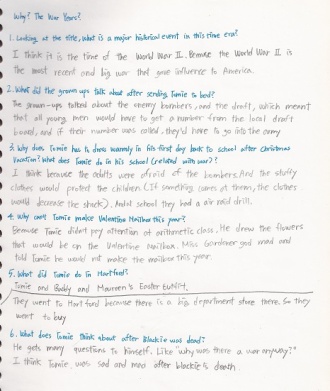 Why? The War Years?
1. Looking at the title, what is a major historical event in this time era?
I think it is the time of the World War II. Because the World War II is
the most recent and big war that gave influence to America.
2. What did the grown ups talk about after sending Tomie to bed?
The grown-ups talked about the enemy bombers, and the draft, which meant
that all young men would have to get a number from the local draft
board, and if their number was called, they'd have to go into the army
3. Why does Tomie has to dress warmly in his first day back to school after Christmas
Vacation? What does Tomie do in his school (related with war)?
I think because the adults were afraid of the bombers. And the stuffy
clothes would protect the children. (If something comes at them, the clothes
would decrease the shock). And at school they had a air raid drill.
4. Why can't Tomie make Valentine Mailbox this year?
Because Tomie didn't pay attention at arithmetic class. He drew the flowers
that would be on the Valentine mailbox. Miss Gardener got mad and
told Tomie he would not make the mailbox this year.
5. What did Tomie do in Hartford?
Tomie and Buddy and Maureen's Easter outfit.
They went to Hartford because there is a big department store there. So they
went to buy
6. What does Tomie think about after Blackie was dead?
He gets many questions to himself. Like "why was there a war anyway?"
I think Tomie was sad and mad after blackie's death.